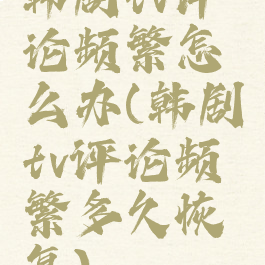 韩剧tv评
论频繁怎
么办(韩剧
tv评论频
繁多久恢
复)